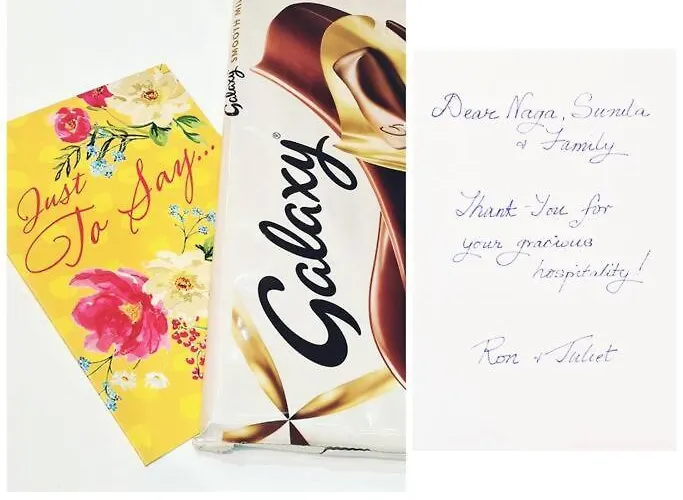 Just
To Say...
Galaxy
SMOOTH MILK
Galaxy®
Dear Naga, Sunila
& Family
Thank-You for
your gracious
hospitality!
Ron & Juliet